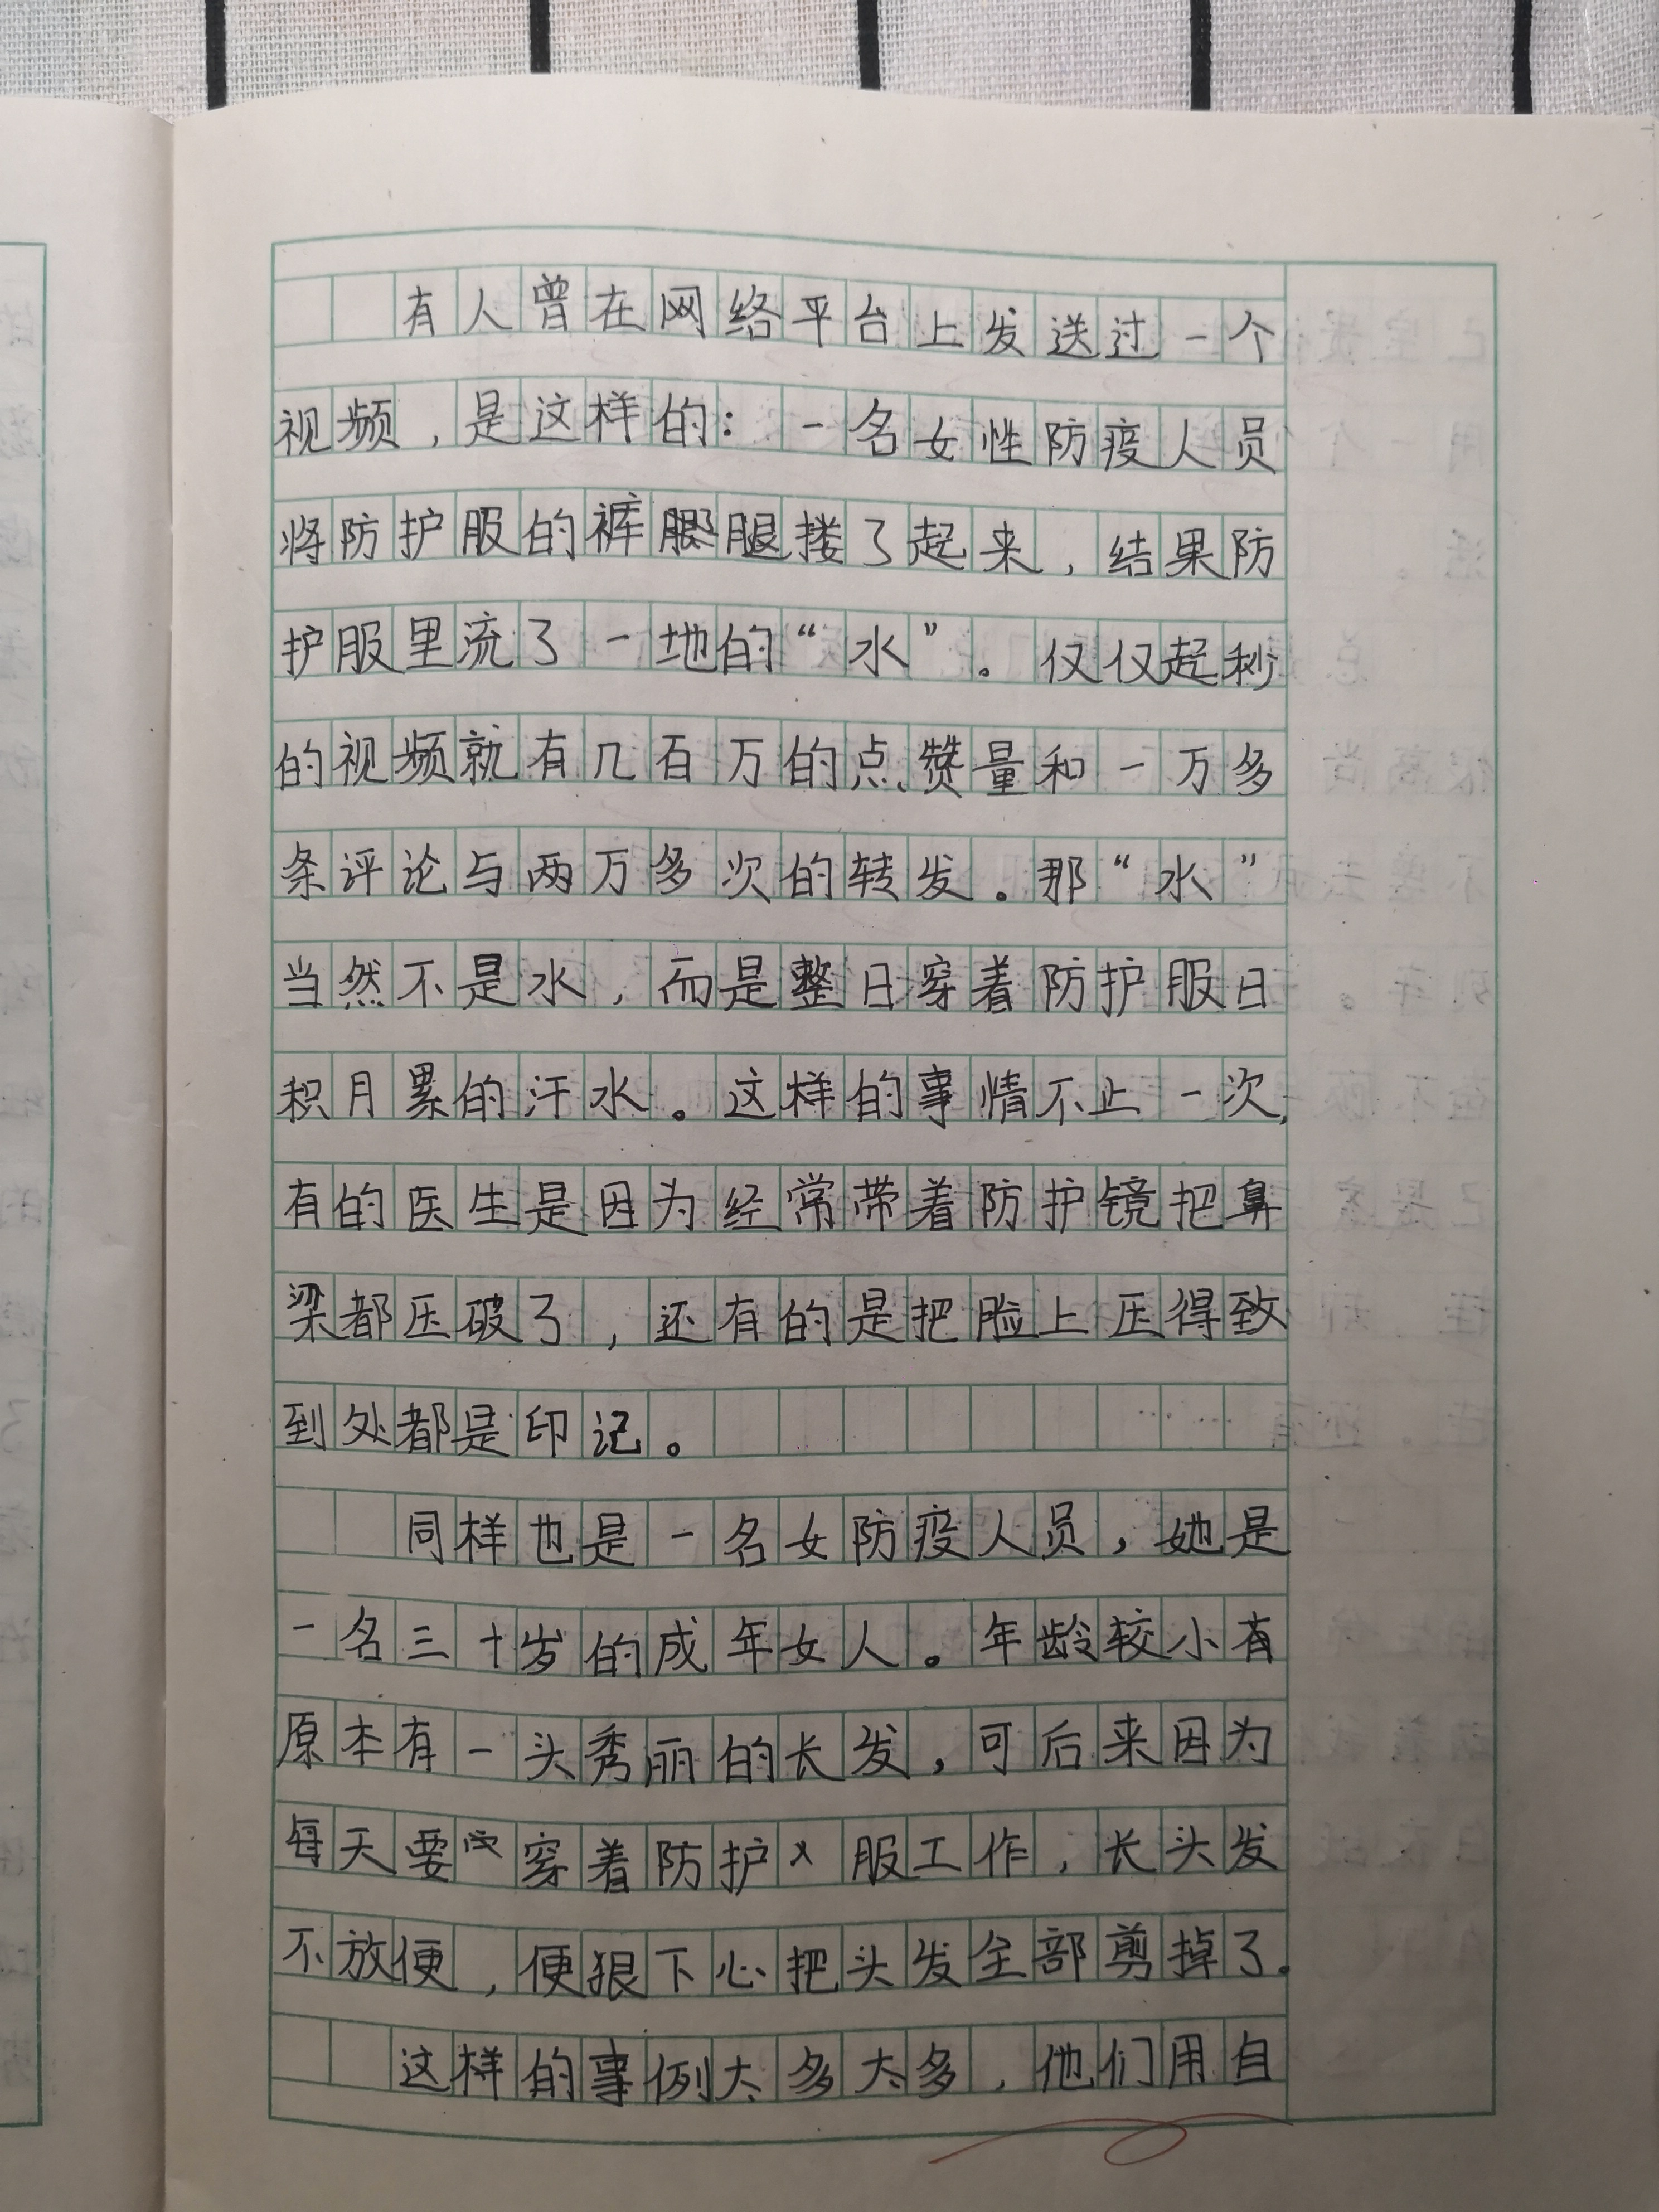 有人曾在网络平台上发送过一个
视频，是这样的：一名女性防疫人员
将防护服的裤腿搂了起来，结果防
护服里流了一地的“水”。仅仅起秒
的视频就有几百万的点赞量和一万多
条评论与两万多次的转发。那“水”
当然不是水，而是整日穿着防护服日
积月累的汗水。这样的事情不止一次，
有的医生是因为经常带着防护镜把鼻
梁都压破了，还有的是把脸上压得致
到处都是印记。
同样也是一名女防疫人员，她是
一名三十岁的成年女人。年龄较小有
原本有一头秀丽的长发，可后来因为
每天要穿着防护服工作，长头发
不放便，便狠下心把头发全部剪掉了。
这样的事例太多太多，他们用自